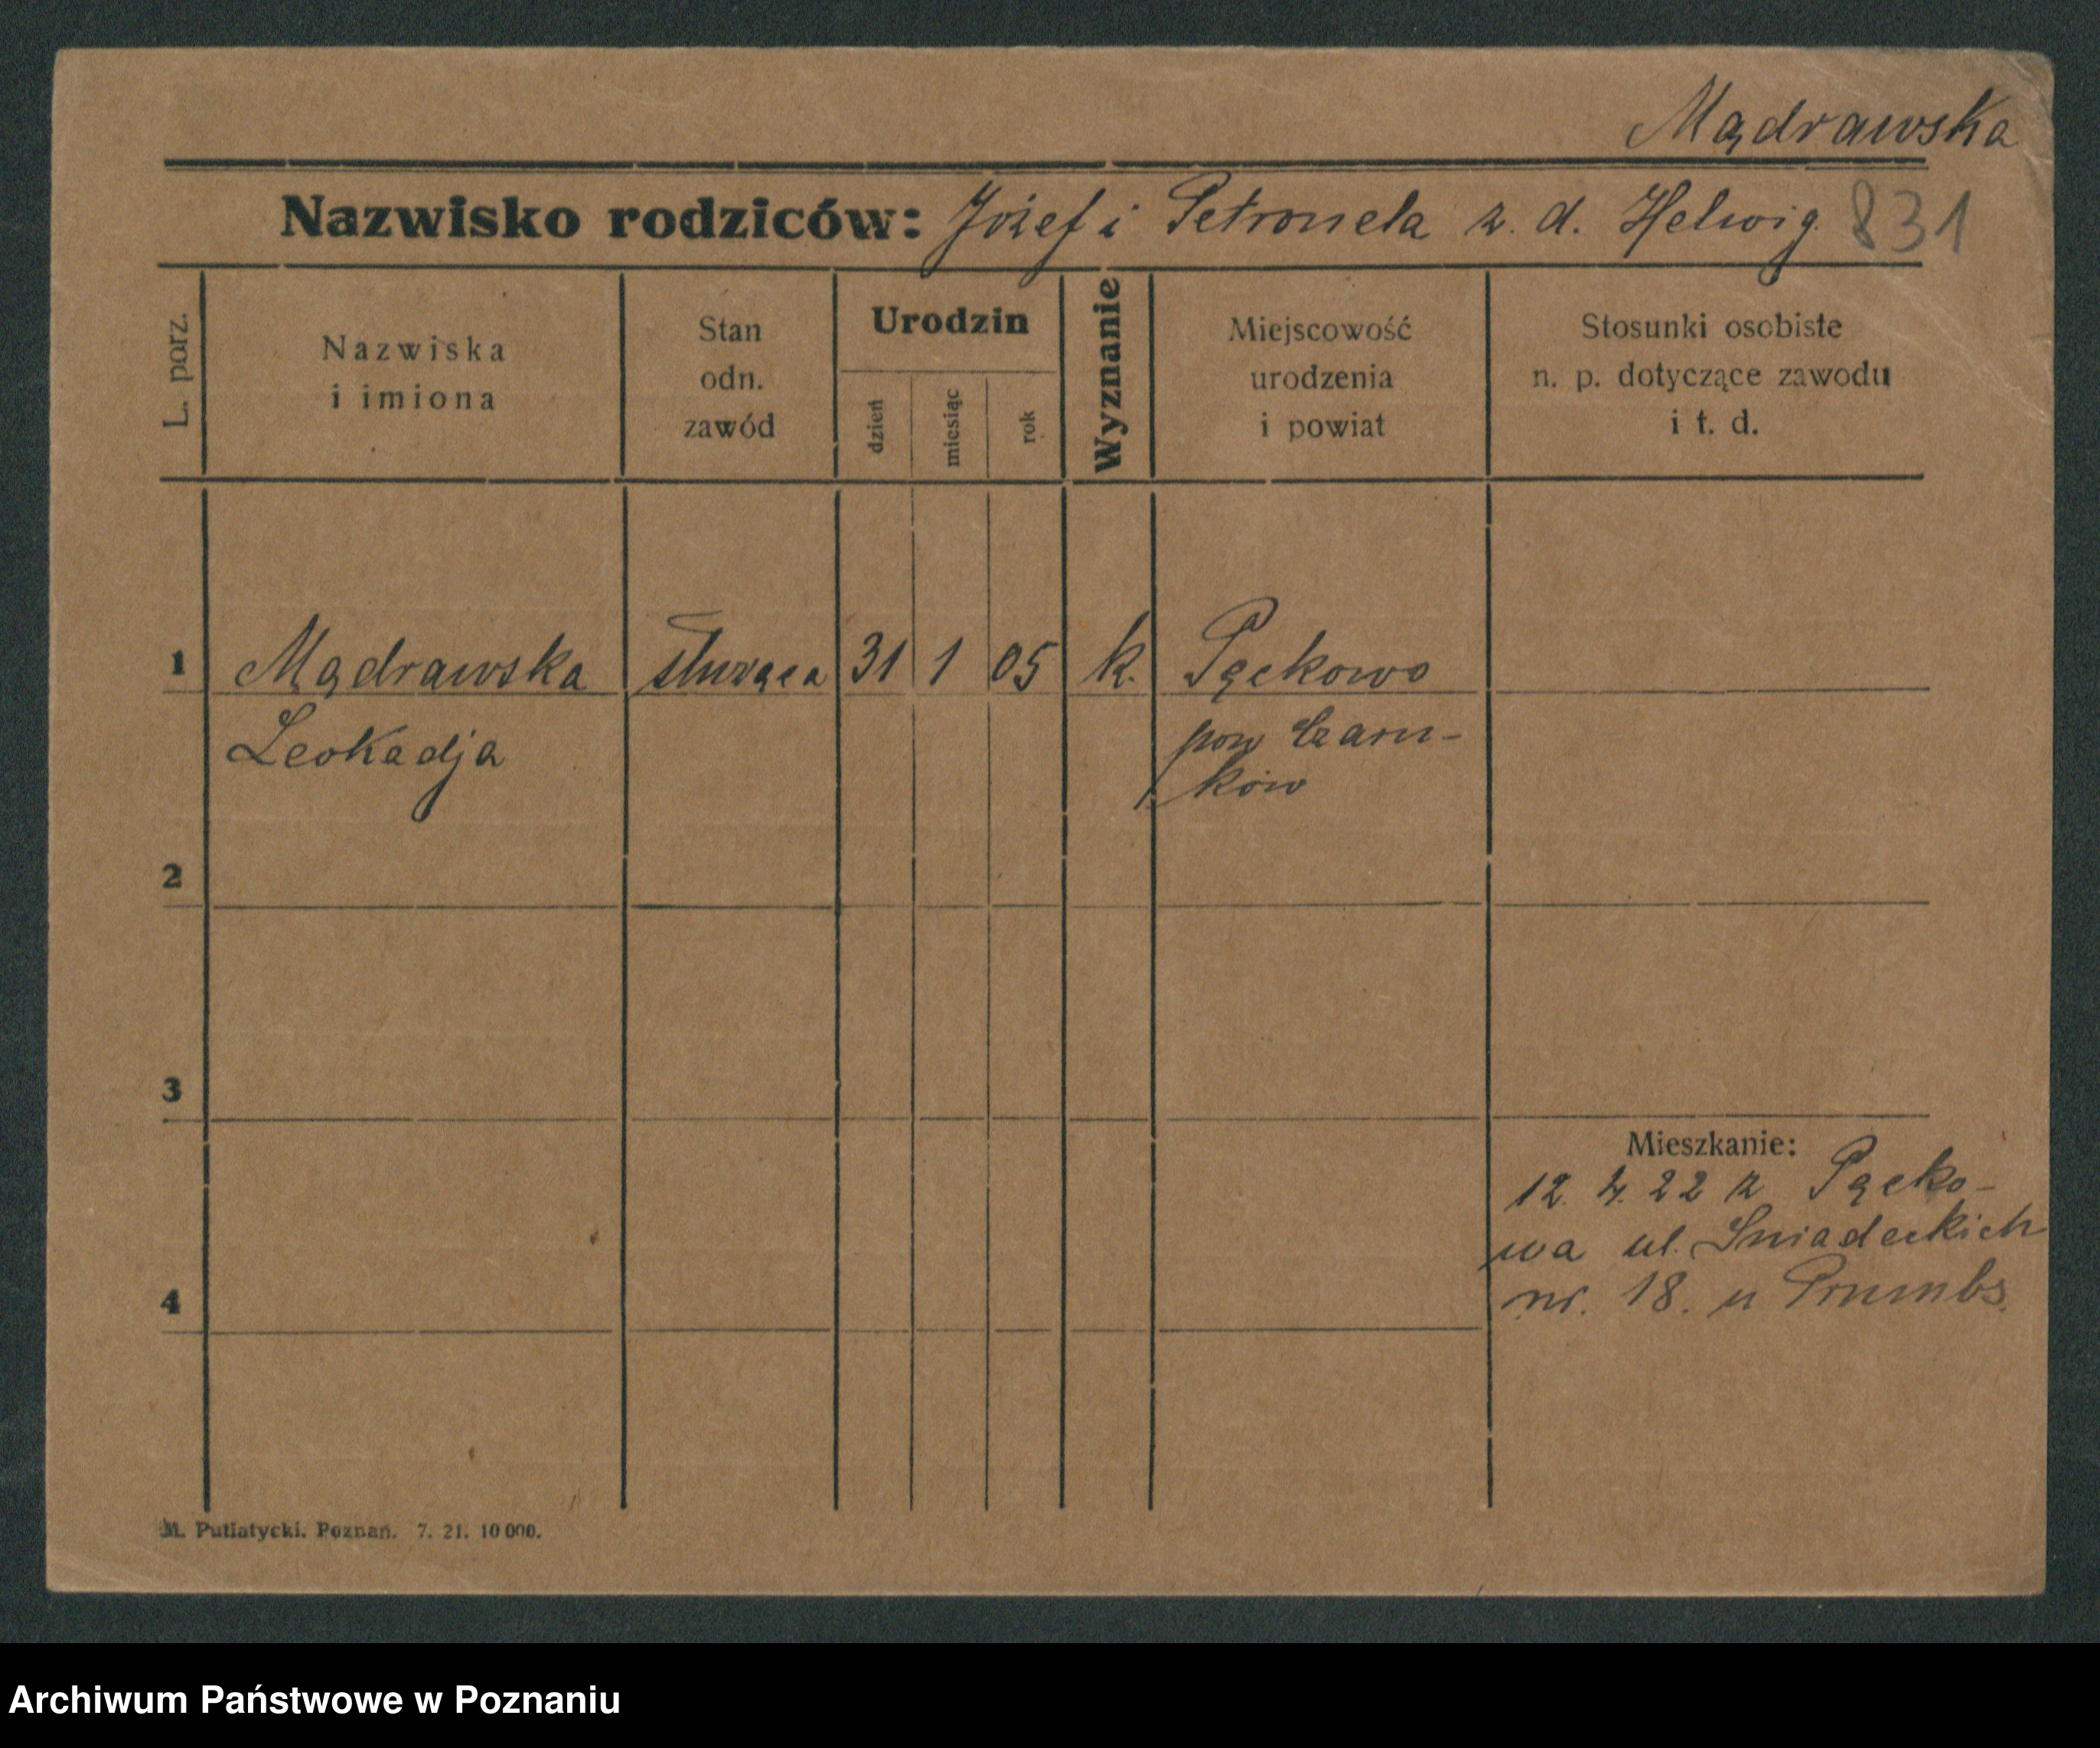 Mądrawska
Nazwisko rodziców: Józef i Petronela z. d. Helwig. 831
L. porz.
Nazwiska
i imiona
Stan
odn.
zawód
Urodzin
dzień
miesiąc
rok
Wyznanie
Miejscowość
urodzenia
i powiat
Stosunki osobiste
n. p. dotyczące zawodu
i t. d.
1 Mądrawska służąca 31 1 05 k. Pęckowo
Leokadja pow Czarn-
ków
2
3
Mieszkanie:
12. 4. 22 z Pęcko-
wa ul. Sniadeckich
4 nr. 18. u
M. Putiatycki. Poznań. 7. 21. 10000.
Archiwum Państwowe w Poznaniu